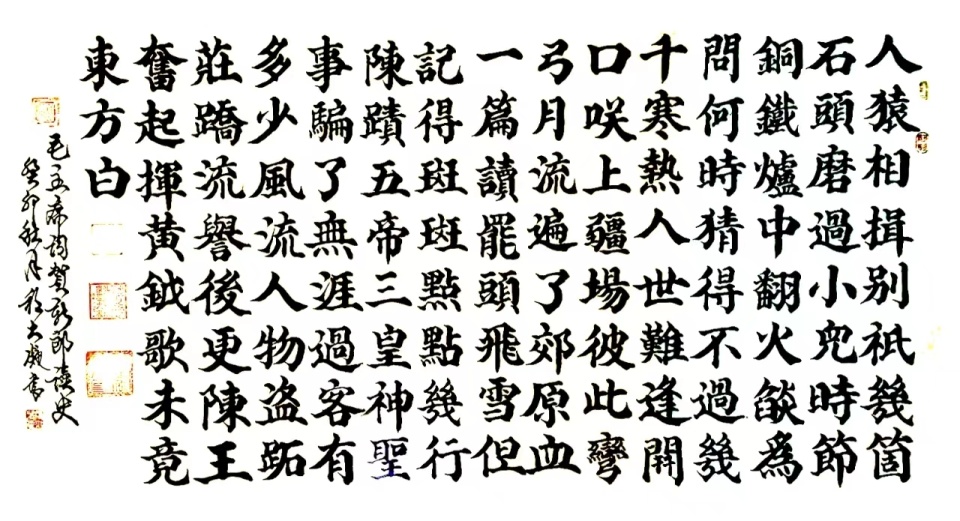 人猿相揖别祇幾箇
石頭磨過小兒時節
銅鐵爐中翻火燄爲
問何時猜得不過幾
千寒熱人世難逢開
口咲上疆場彼此彎
弓月流遍了郊原血
一篇讀罷頭飛雪但
記得斑斑點點幾行
陳蹟五帝三皇神聖
事騙了無涯過客有
多少風流人物盗跖
莊蹻流譽後更陳王
奮起揮黃鉞歌未竟
東方白
毛主席詞賀新郎讀史
癸卯秋月
書